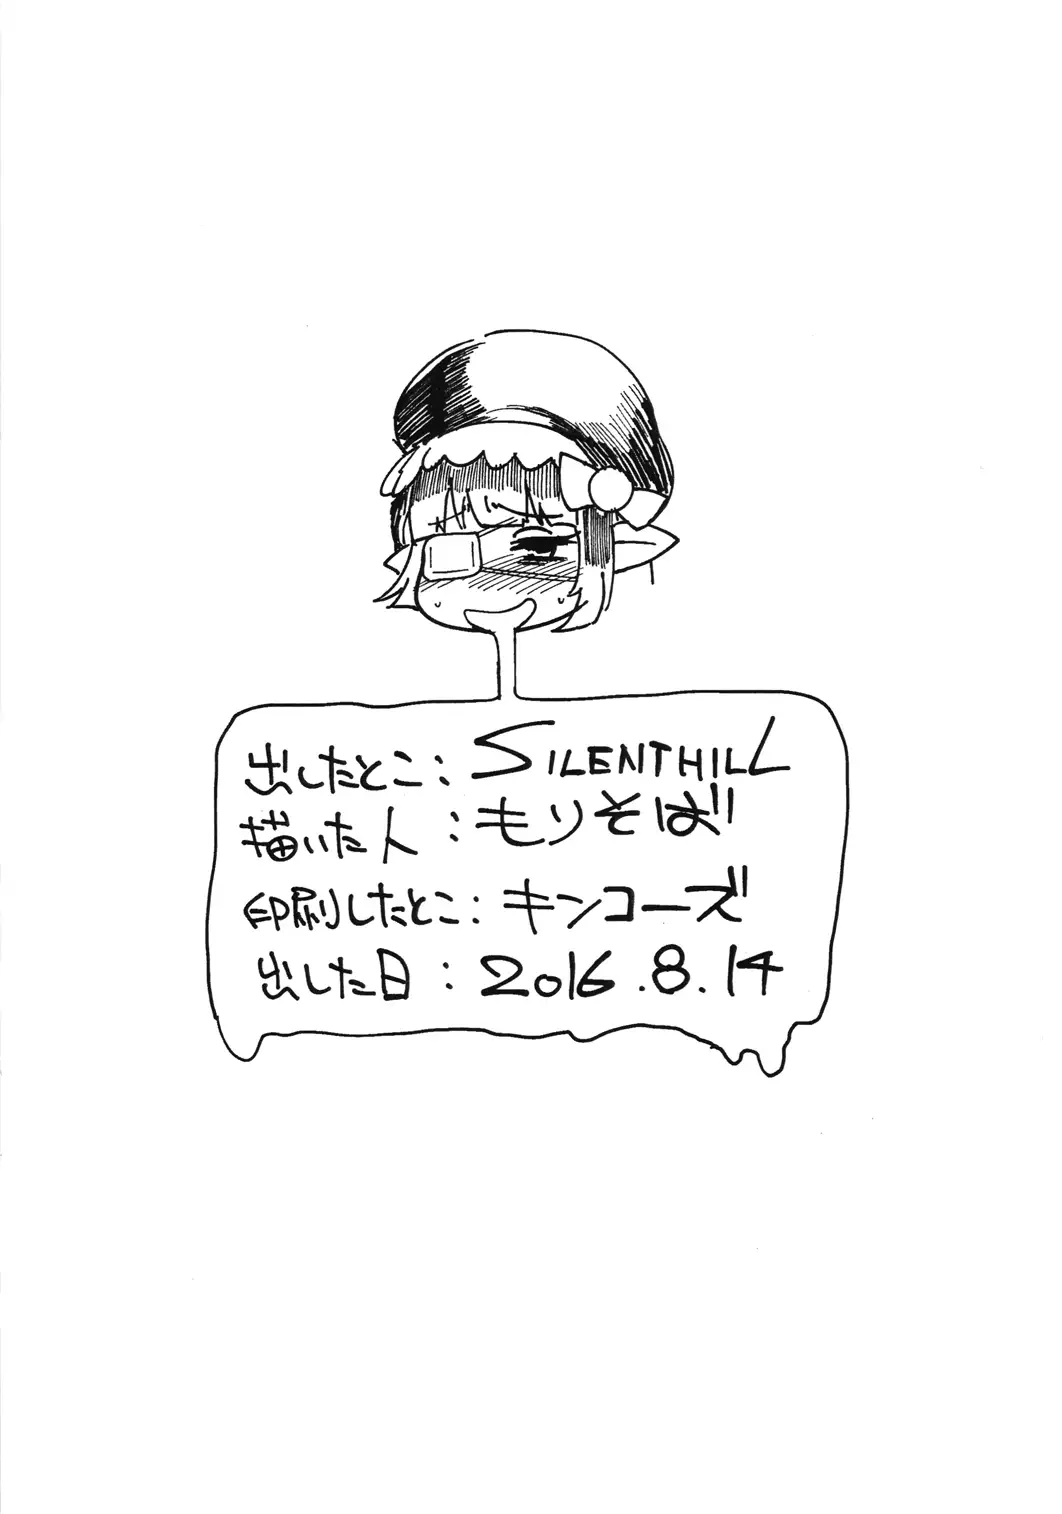 出したとこ：SILENTHILL
描いた人：もりそば
印刷したとこ：キンコーズ
出した日：2016.8.14